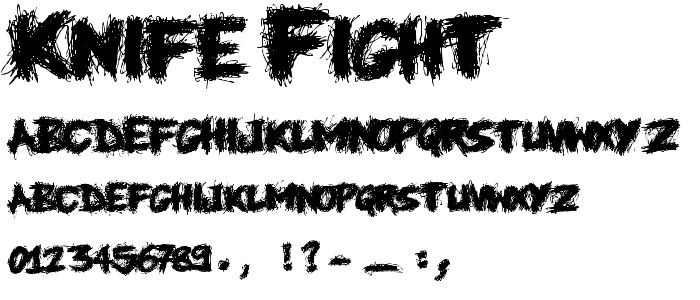 Knife Fight
ABCDEFGHIJKLMNOPQRSTUVWXYZ
ABCDEFGHIJKLMNOPQRSTUVWXYZ
0123456789., !?-_:;